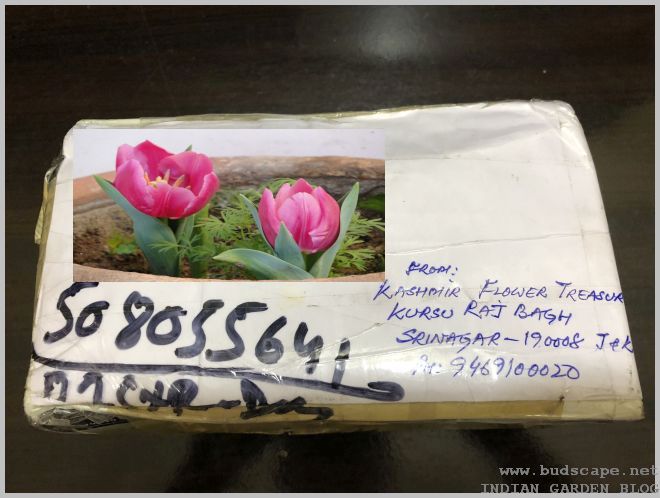 FROM:
KASHMIR FLOWER TREASUR
KURSU RAJ BAGH
SRINAGAR-190008 J&K
PH: 9469100020
508055641
www.budscape.net
INDIAN GARDEN BLOG